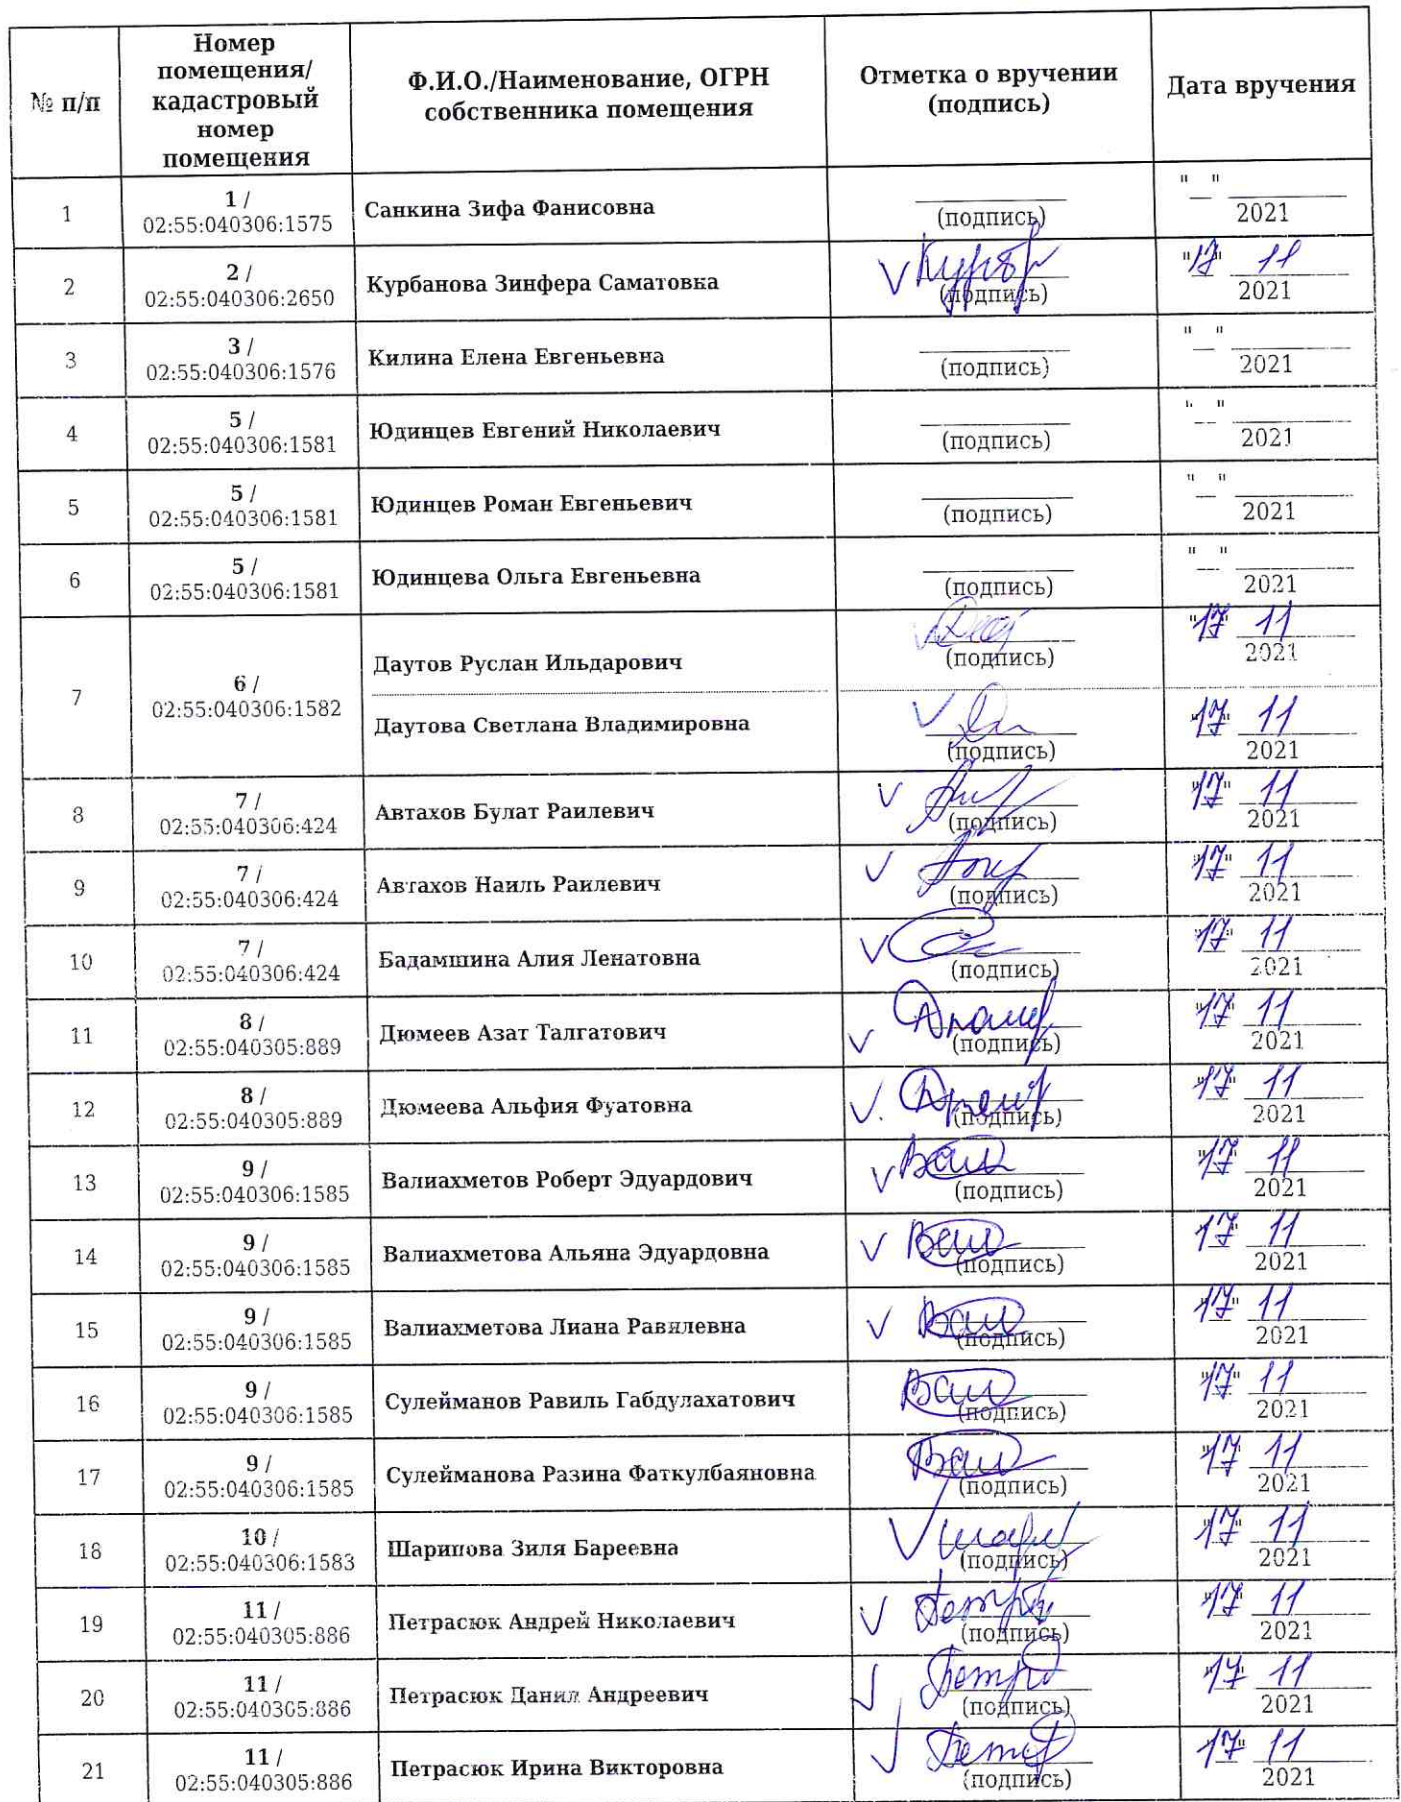 № п/п
Номер
помещения/
кадастровый
номер
помещения
Ф.И.О./Наименование, ОГРН
собственника помещения
Отметка о вручении
(подпись)
Дата вручения
1
1 /
02:55:040306:1575
Санкина Зифа Фанисовна
(подпись)
"__" ________
2021
2
2 /
02:55:040306:2650
Курбанова Зинфера Саматовка
(подпись)
"17" 11
2021
3
3 /
02:55:040306:1576
Килина Елена Евгеньевна
(подпись)
"__" ________
2021
4
5 /
02:55:040306:1581
Юдинцев Евгений Николаевич
(подпись)
"__" ________
2021
5
5 /
02:55:040306:1581
Юдинцев Роман Евгеньевич
(подпись)
"__" ________
2021
6
5 /
02:55:040306:1581
Юдинцева Ольга Евгеньевна
(подпись)
"__" ________
2021
7
6 /
02:55:040306:1582
Даутов Руслан Ильдарович
(подпись)
"17" 11
2021
Даутова Светлана Владимировна
(подпись)
"17" 11
2021
8
7 /
02:55:040306:424
Автахов Булат Раилевич
(подпись)
"17" 11
2021
9
7 /
02:55:040306:424
Автахов Наиль Раилевич
(подпись)
"17" 11
2021
10
7 /
02:55:040306:424
Бадамшина Алия Ленатовна
(подпись)
"17" 11
2021
11
8 /
02:55:040305:889
Дюмеев Азат Талгатович
(подпись)
"17" 11
2021
12
8 /
02:55:040305:889
Дюмеева Альфия Фуатовна
(подпись)
"17" 11
2021
13
9 /
02:55:040306:1585
Валиахметов Роберт Эдуардович
(подпись)
"17" 11
2021
14
9 /
02:55:040306:1585
Валиахметова Альяна Эдуардовна
(подпись)
"17" 11
2021
15
9 /
02:55:040306:1585
Валиахметова Лиана Равилевна
(подпись)
"17" 11
2021
16
9 /
02:55:040306:1585
Сулейманов Равиль Габдулахатович
(подпись)
"17" 11
2021
17
9 /
02:55:040306:1585
Сулейманова Разина Фаткулбаяновна
(подпись)
"17" 11
2021
18
10 /
02:55:040306:1583
Шарипова Зиля Бареевна
(подпись)
"17" 11
2021
19
11 /
02:55:040305:886
Петрасюк Андрей Николаевич
(подпись)
"17" 11
2021
20
11 /
02:55:040305:886
Петрасюк Данил Андреевич
(подпись)
"17" 11
2021
21
11 /
02:55:040305:886
Петрасюк Ирина Викторовна
(подпись)
"17" 11
2021